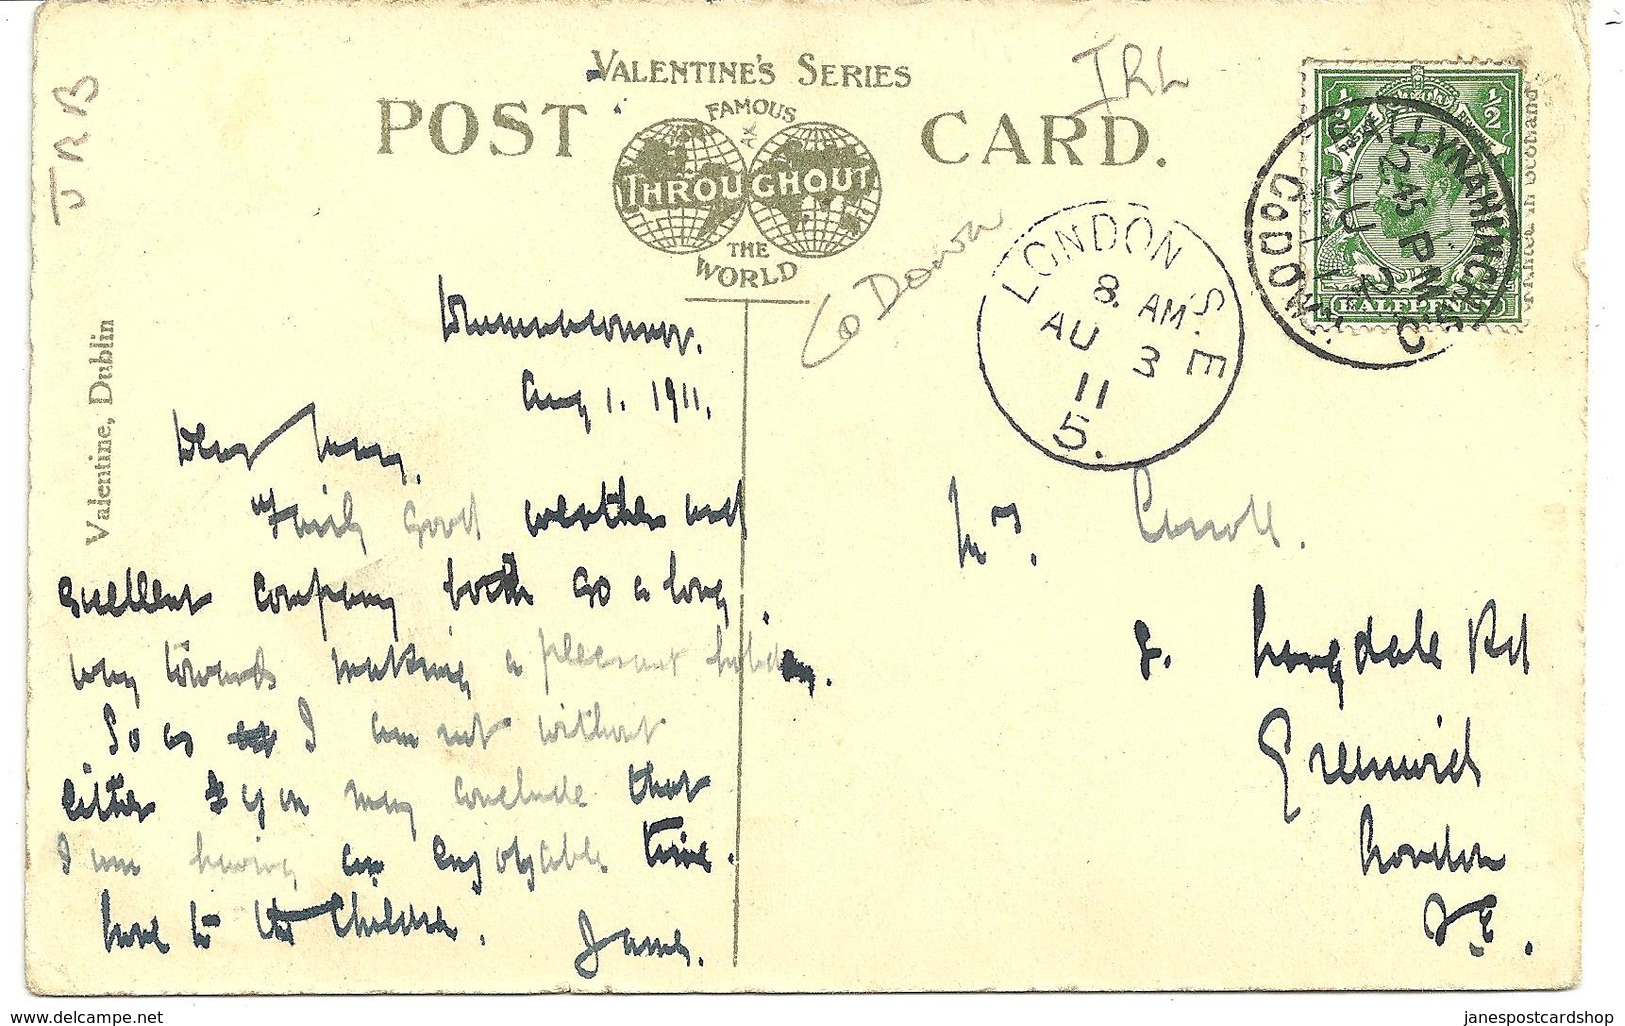 VALENTINE'S SERIES
POST CARD.
FAMOUS
THROUGHOUT
THE
WORLD
IRL
Co Down
JRB
Valentine, Dublin
½ ½
POSTAGE REVENUE
HALFPENNY
Printed in Scotland
BALLYNAHINCH
CO DOWN
12.45 PM
AU 1
LONDON S.E
8. AM
AU 3
11
5.
Aug 1. 1911.
Dear Mary.
Fairly good weather and
excellent company both go a long
way towards making a pleasant holiday.
So as I am not without
either you may conclude that
I am having an enjoyable time.
Love to the children.
James.
Mrs. Carroll.
2. Langdale Rd
Greenwich
London
S.E.
delcampe.net
janespostcardshop